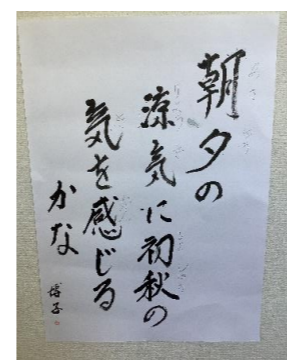 朝夕の
涼気に初秋の
気を感じる
かな